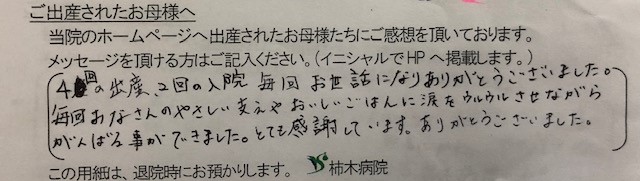 ご出産されたお母様へ
当院のホームページへ出産されたお母様たちにご感想を頂いております。
メッセージを頂ける方はご記入ください。(イニシャルでHPへ掲載します。)
4回の出産、2回の入院 毎回 お世話になりありがとうございました。
毎回 みなさんのやさしい支えや おいしいごはんに 涙を ウルウル させながら
がんばる事ができました。とても感謝しています。ありがとうございました。
この用紙は、退院時にお預かりします。 柿木病院